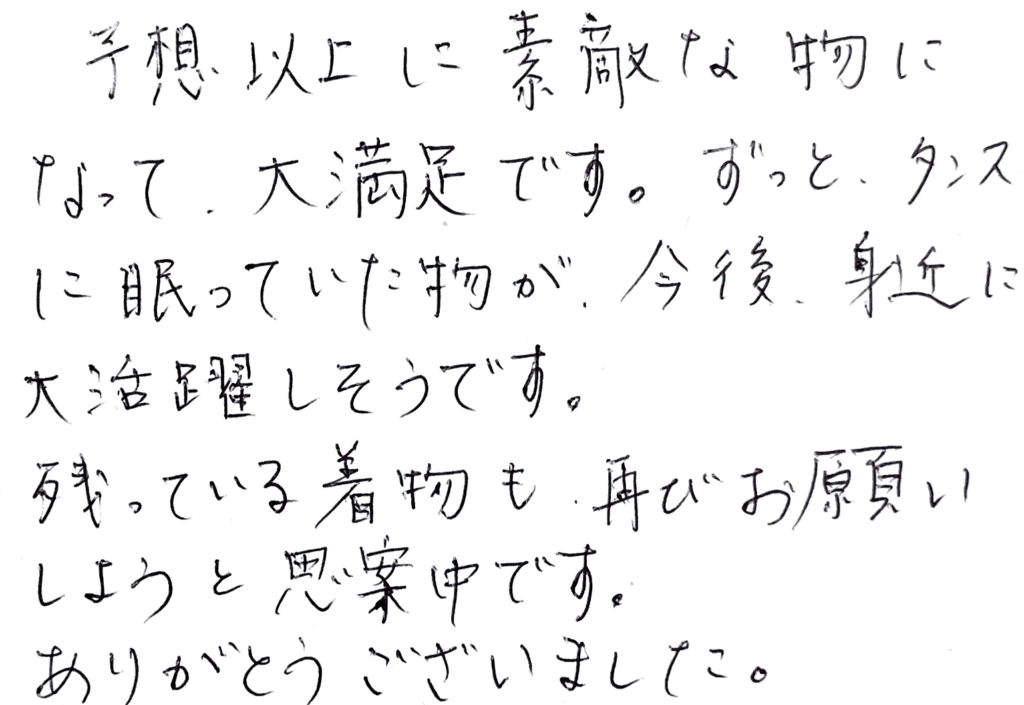 予想以上に素敵な物に
なって、大満足です。ずっと、タンス
に眠っていた物が、今後、身近に
大活躍しそうです。
残っている着物も、再びお願い
しようと思案中です。
ありがとうございました。